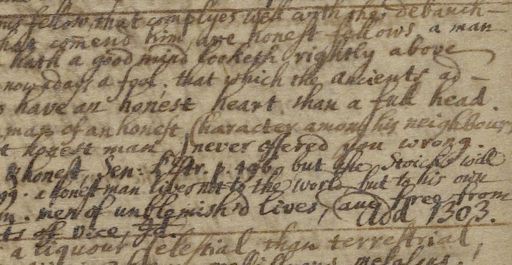 fellow, that complyes well with the debauch-
that comend him, are honest fellows, a man
hath a good mind looketh rightly above
now adays a fool, that which the ancients ad-
have an honest heart than a full head.
man of an honest Character among his neighbours
honest man, I never offered you wrong.
honest, Sen: p. 496. but the Stoicks will
a honest man lives not to the world, but to his own
men of unblemish'd lives, and free from
of vice. Add 1303.
a liquour Celestial, than terrestrial,